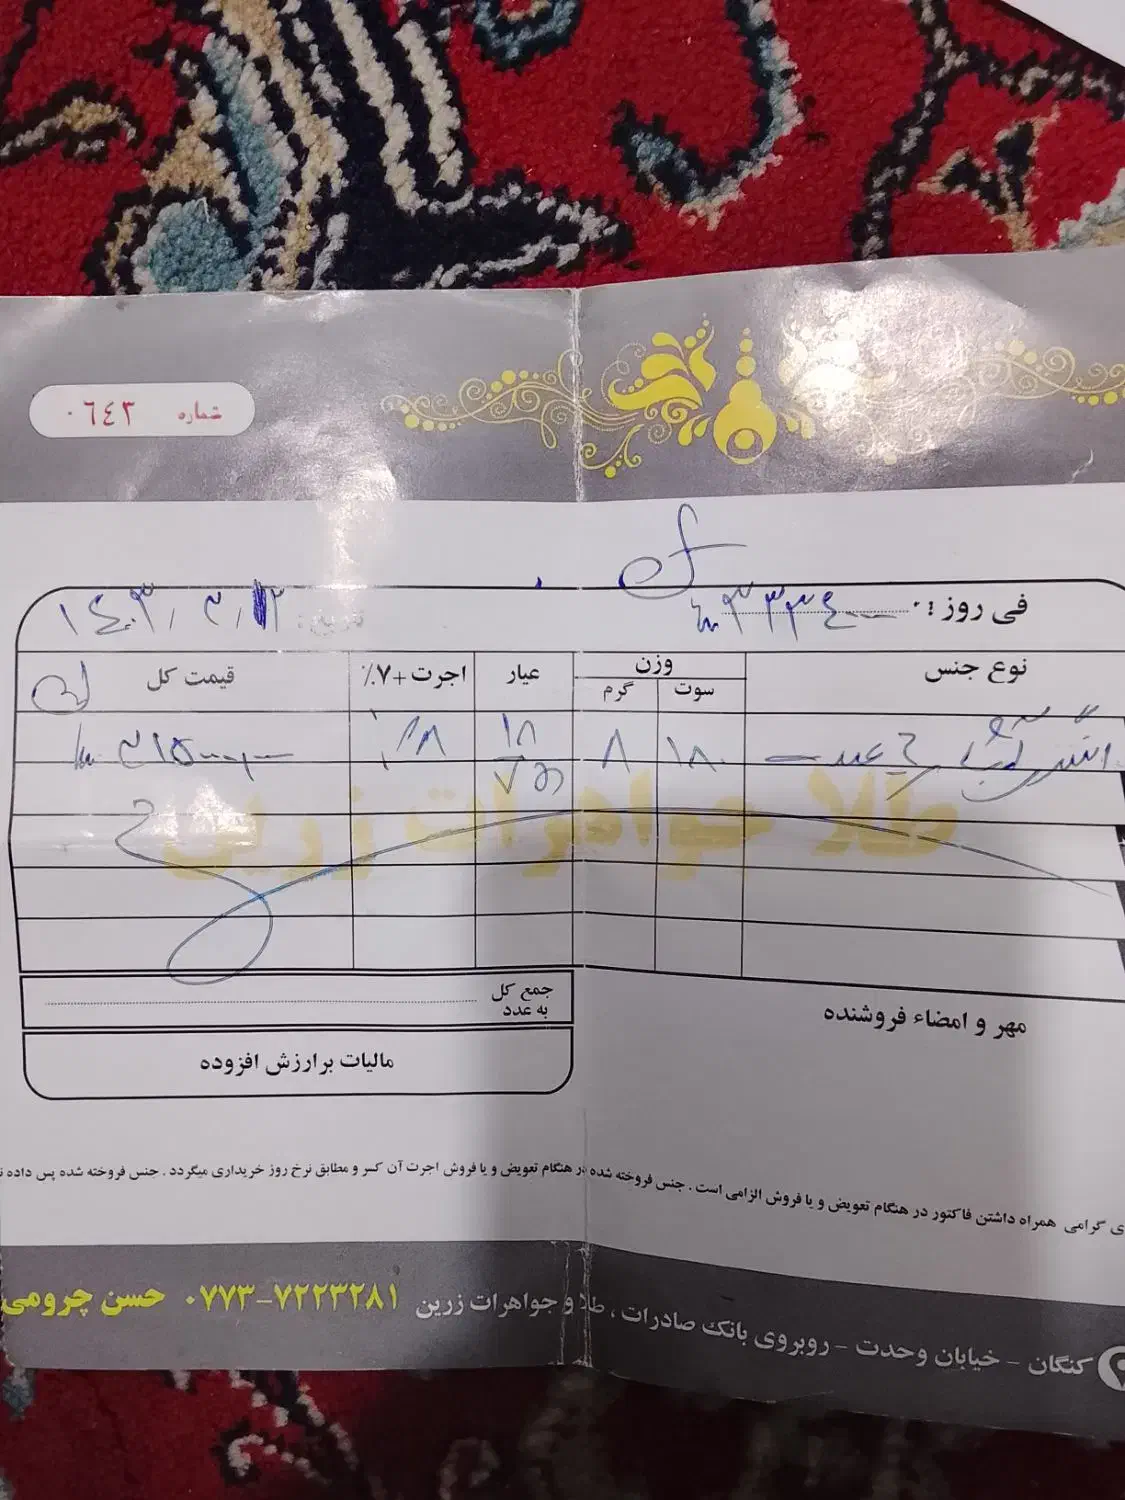 شماره ٠٦٤٣
فی روز : ۳۳۳٤۰۰۰
تاریخ: ۱٤۰۳/۳/۱۲
نوع جنس وزن سوت گرم عیار اجرت +۷٪ قیمت کل
عدد ۱۸۰ ۸ ۱۸ ۷۵۰ ٪۸
طلا جواهرات زرین
جمع کل
به عدد
مهر و امضاء فروشنده
مالیات بر ارزش افزوده
ی گرامی همراه داشتن فاکتور در هنگام تعویض و یا فروش الزامی است . جنس فروخته شده در هنگام تعویض و یا فروش اجرت آن کسر و مطابق نرخ روز خریداری میگردد . جنس فروخته شده پس داده
کنگان - خیابان وحدت - روبروی بانک صادرات ، طلا و جواهرات زرین ۰۷۷۳-۷۲۲۳۲۸۱ حسن چرومی